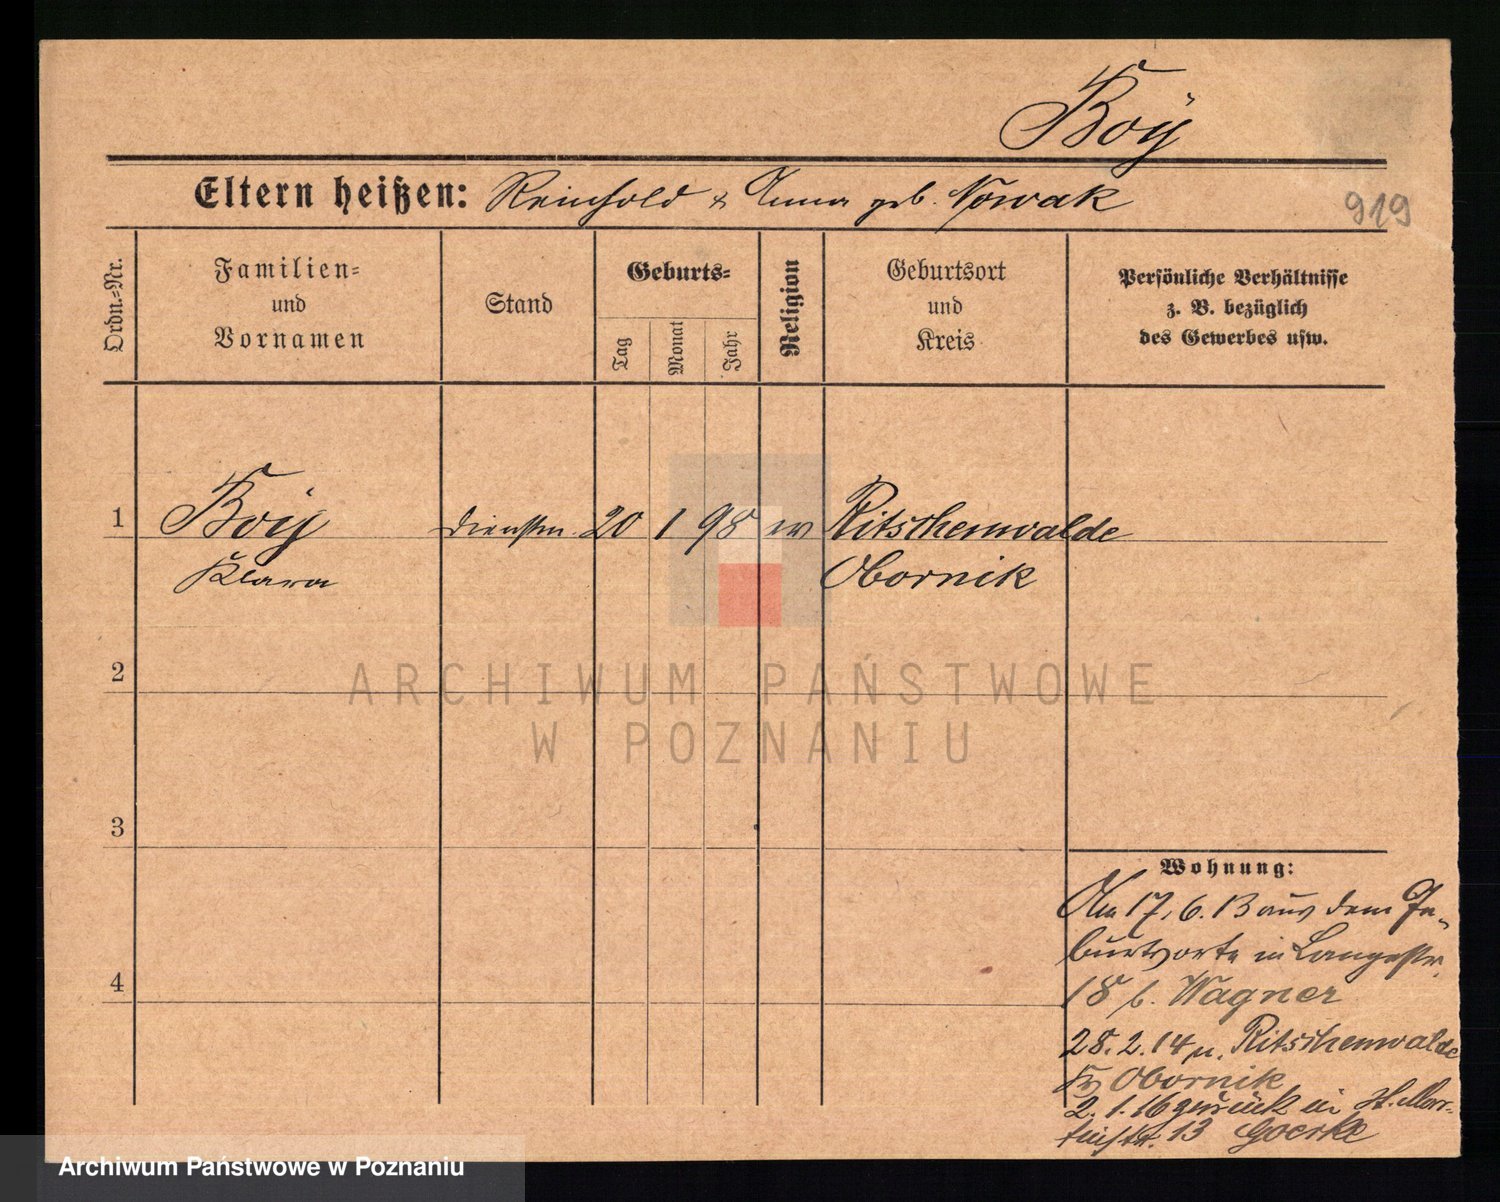 Boÿ
Eltern heißen: Reinhold & Anna geb. Nowak
919
Ordn.-Nr.
Familien-
und
Vornamen
Stand
Geburts-
Tag
Monat
Jahr
Religion
Geburtsort
und
Kreis
Persönliche Verhältnisse
z. B. bezüglich
des Gewerbes usw.
1 Boÿ Dienstm. 20 1 98 ev Ritschenwalde
Klara Obornik
2
ARCHIWUM PAŃSTWOWE
W POZNANIU
3
Wohnung:
Am 17.6.13 aus dem Ge-
burtsorte in Langestr.
4
18 b. Wagner
28.2.14 n. Ritschenwalde
Kr Obornik
2.1.16 zurück in St. Mar-
tinstr. 13 Goerke
Archiwum Państwowe w Poznaniu